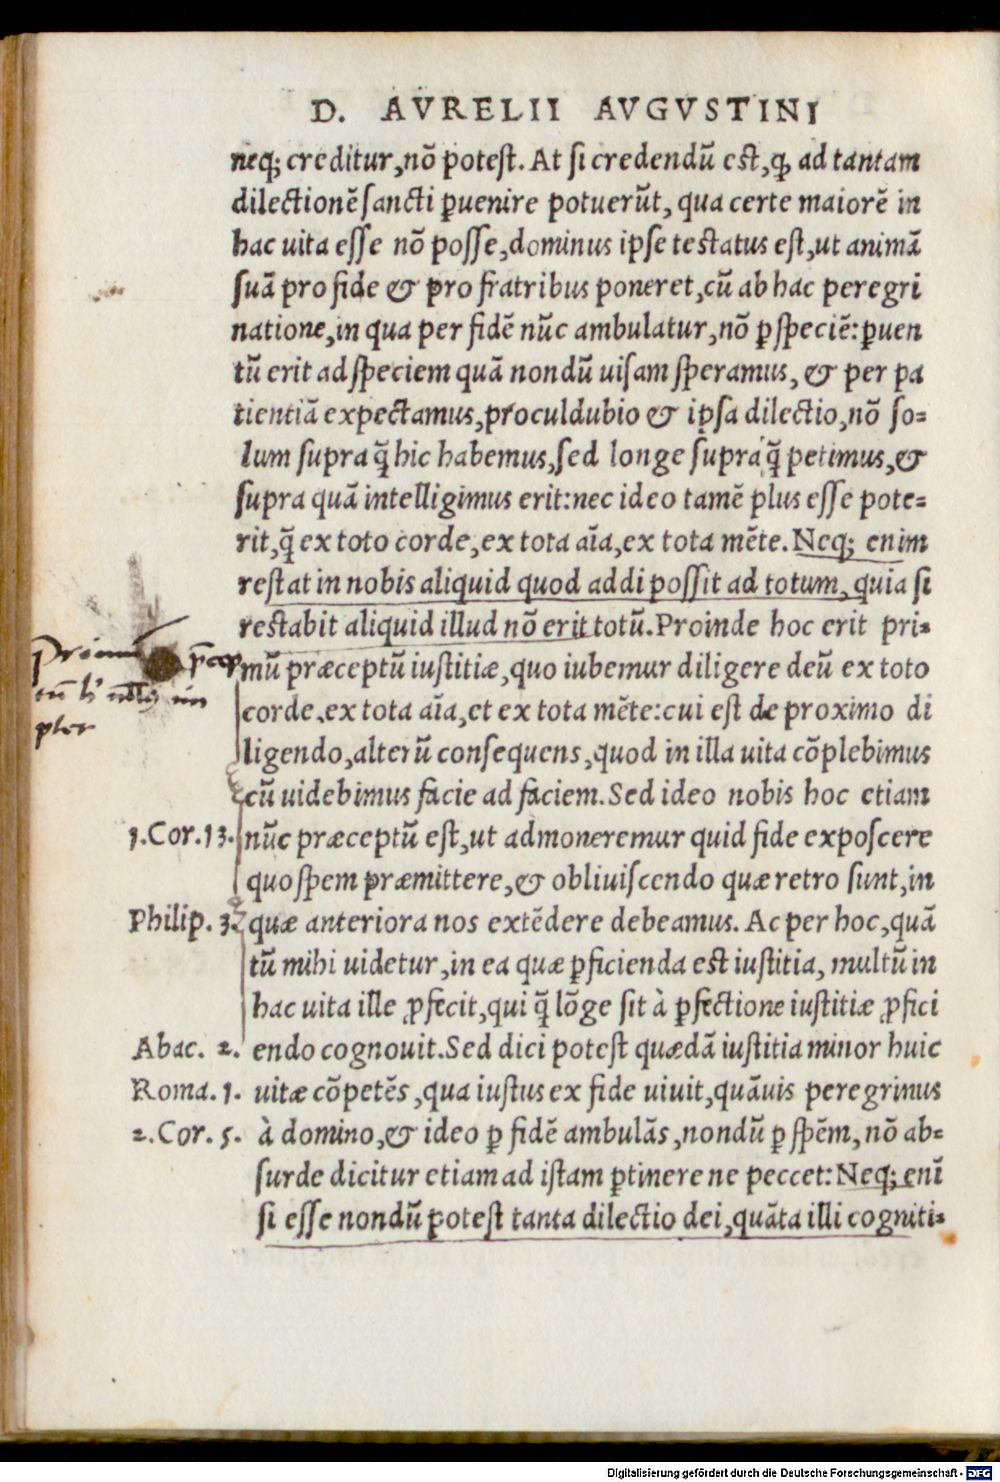 D. AVRELII AVGVSTINI
neq; creditur, nõ potest. At si credendũ est, ꝙ ad tantam
dilectionẽ sancti ꝑuenire potuerũt, qua certe maiorẽ in
hac uita esse nõ posse, dominus ipse testatus est, ut animã
suã pro fide & pro fratribus poneret, cũ ab hac peregri
natione, in qua per fidẽ nũc ambulatur, nõ ꝑ speciẽ: ꝑuen
tũ erit ad speciem quã nondũ uisam speramus, & per pa
tientiã expectamus, proculdubio & ipsa dilectio, nõ so=
lum supra q̃ hic habemus, sed longe supra q̃ petimus, &
supra quã intelligimus erit: nec ideo tamẽ plus esse pote=
rit, q̃ ex toto corde, ex tota aĩa, ex tota mẽte. Neq; enim
restat in nobis aliquid quod addi possit ad totum, quia si
restabit aliquid illud nõ erit totũ. Proinde hoc erit pri=
mũ præceptũ iustitiæ, quo iubemur diligere deũ ex toto
corde, ex tota aĩa, et ex tota mẽte: cui est de proximo di
ligendo, alterũ consequens, quod in illa uita cõplebimus
cũ uidebimus facie ad faciem. Sed ideo nobis hoc etiam
1.Cor.13. nũc præceptũ est, ut admoneremur quid fide exposcere
quo spem præmittere, & obliuiscendo quæ retro sunt, in
Philip. 3. quæ anteriora nos extẽdere debeamus. Ac per hoc, quã
tũ mihi uidetur, in ea quæ ꝑficienda est iustitia, multũ in
hac uita ille ꝓfecit, qui q̃ lõge sit à ꝑfectione iustitiæ ꝓfici
Abac. 2. endo cognouit. Sed dici potest quædã iustitia minor huic
Roma. 1. uitæ cõpetẽs, qua iustus ex fide uiuit, quãuis peregrinus
2.Cor. 5. à domino, & ideo ꝑ fidẽ ambulãs, nondũ ꝑ spẽm, nõ ab=
surde dicitur etiam ad istam ꝑtinere ne peccet: Neq; enĩ
si esse nondũ potest tanta dilectio dei, quãta illi cogniti=
Digitalisierung gefördert durch die Deutsche Forschungsgemeinschaft - DFG